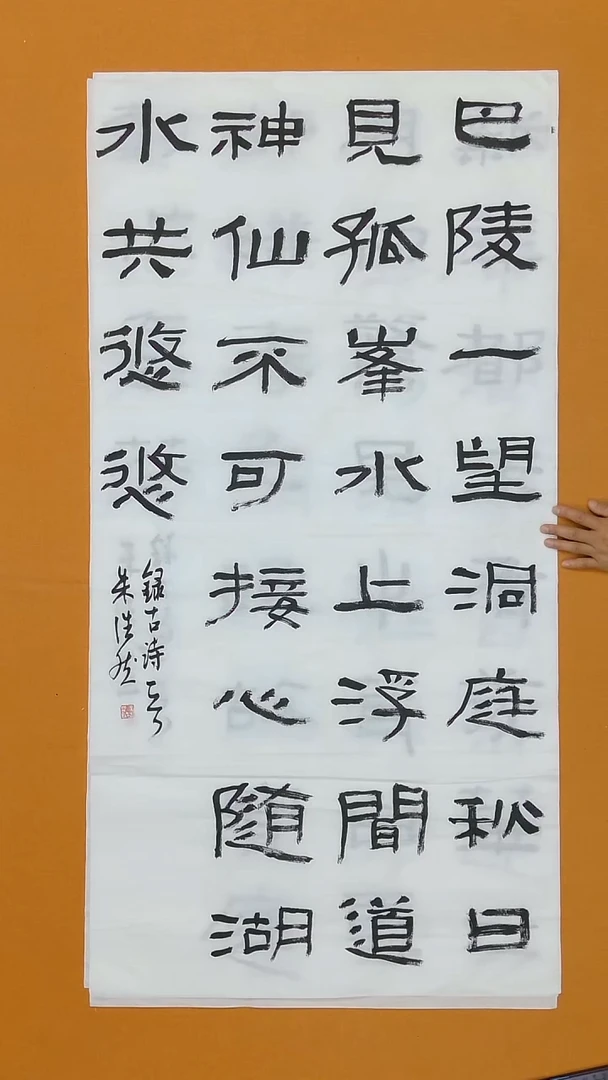 巴陵一望洞庭秋日
見孤峯水上浮間道
神仙不可接心随湖
水共悠悠
録古诗一首
朱浩然